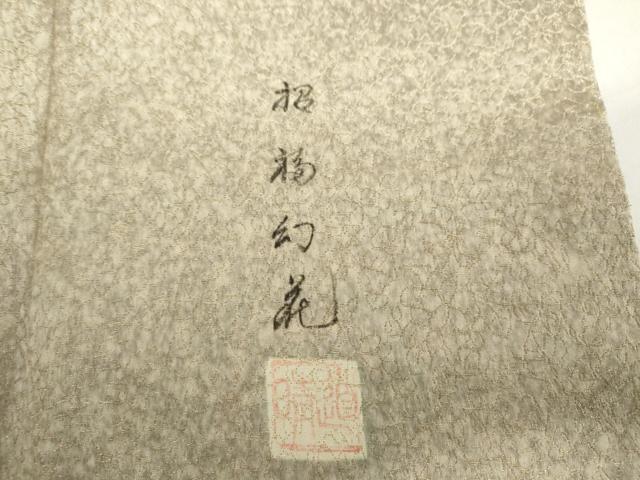 招福幻花